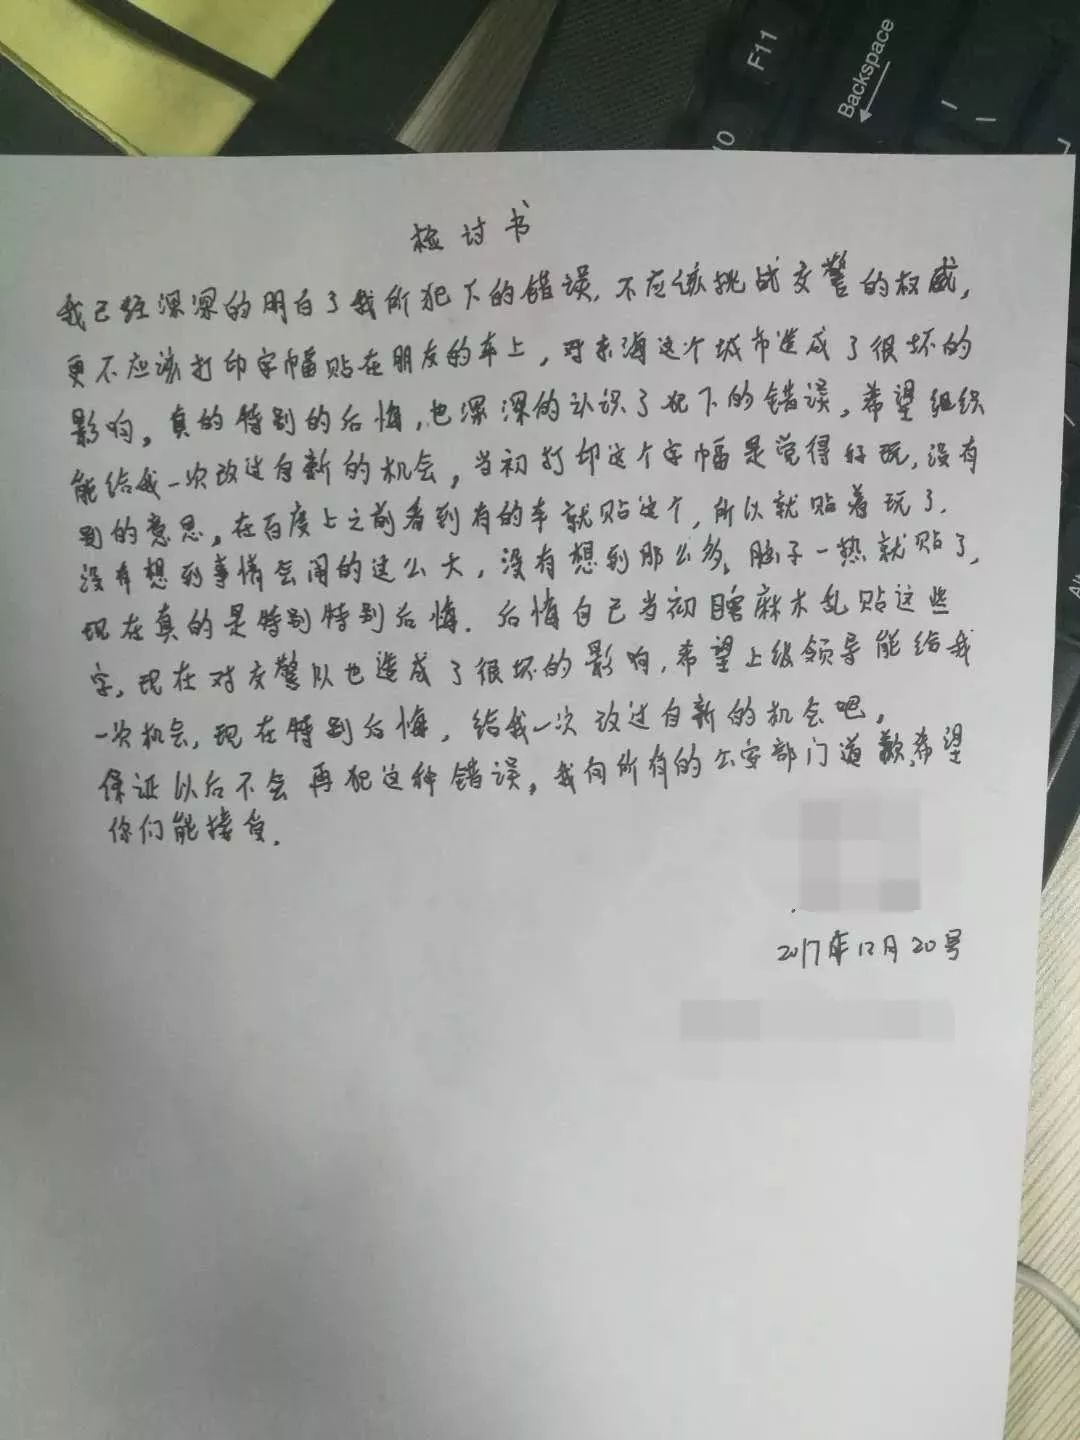 F11
Backspace
10
检讨书
我已经深深的明白了我所犯下的错误.不应该挑战交警的权威,
更不应该打印字幅贴在朋友的车上,对东海这个城市造成了很坏的
影响。真的特别的后悔,也深深的认识了犯下的错误。希望组织
能给我一次改过自新的机会,当初打印这个字幅是觉得好玩,没有
别的意思。在百度上之前看到有的车就贴这个,所以就贴着玩了.
没有想到事情会闹的这么大,没有想到那么多。脑子一热就贴了,
现在真的是特别特别后悔.后悔自己当初瞎麻木乱贴这些
字,现在对交警队也造成了很坏的影响,希望上级领导能给我
一次机会,现在特别后悔,给我一次改过自新的机会吧。
保证以后不会再犯这种错误,我向所有的公安部门道歉,希望
你们能接受.
2017年12月20号